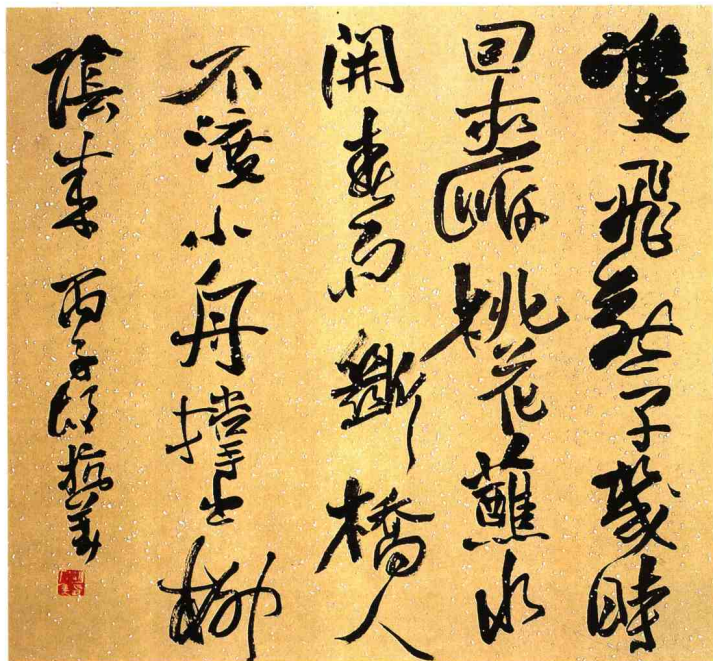 雙飛燕子幾時
回夾岸桃花蘸水
開春雨斷橋人
不渡小舟撐出柳
陰來 丙子胡抗美